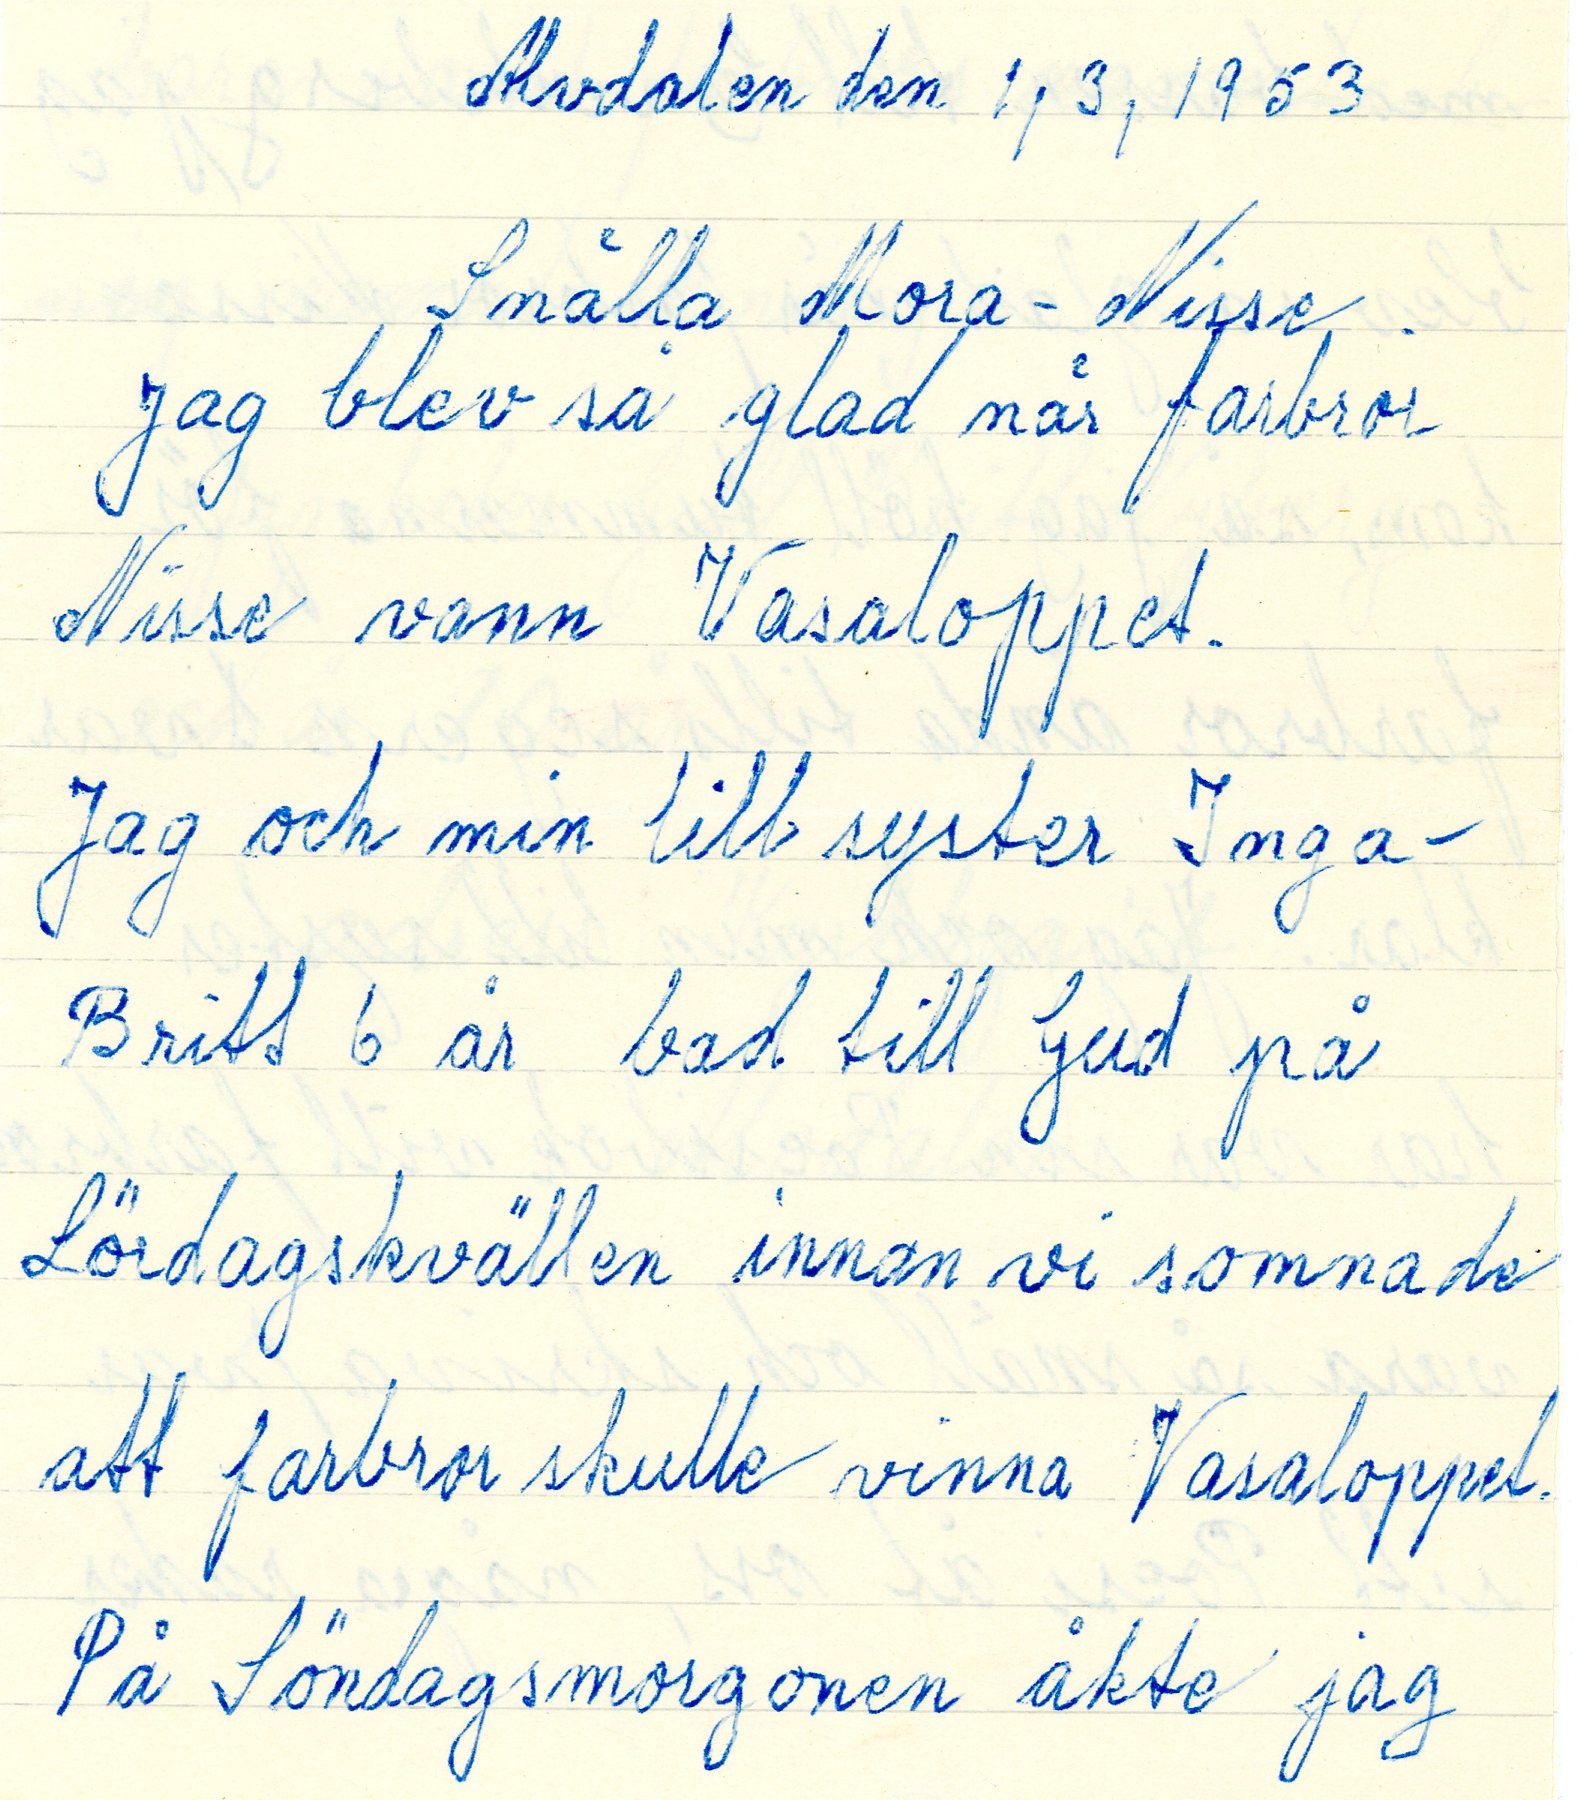 Älvdalen den 1, 3, 1953
Snälla Mora-Nisse.
Jag blev så glad når farbror
Nisse vann Vasaloppet.
Jag och min lill syster Inga-
Britt 6 år bad till Gud på
Lördagskvällen innan vi somnade
att farbror skulle vinna Vasaloppet.
På Söndagsmorgonen åkte jag